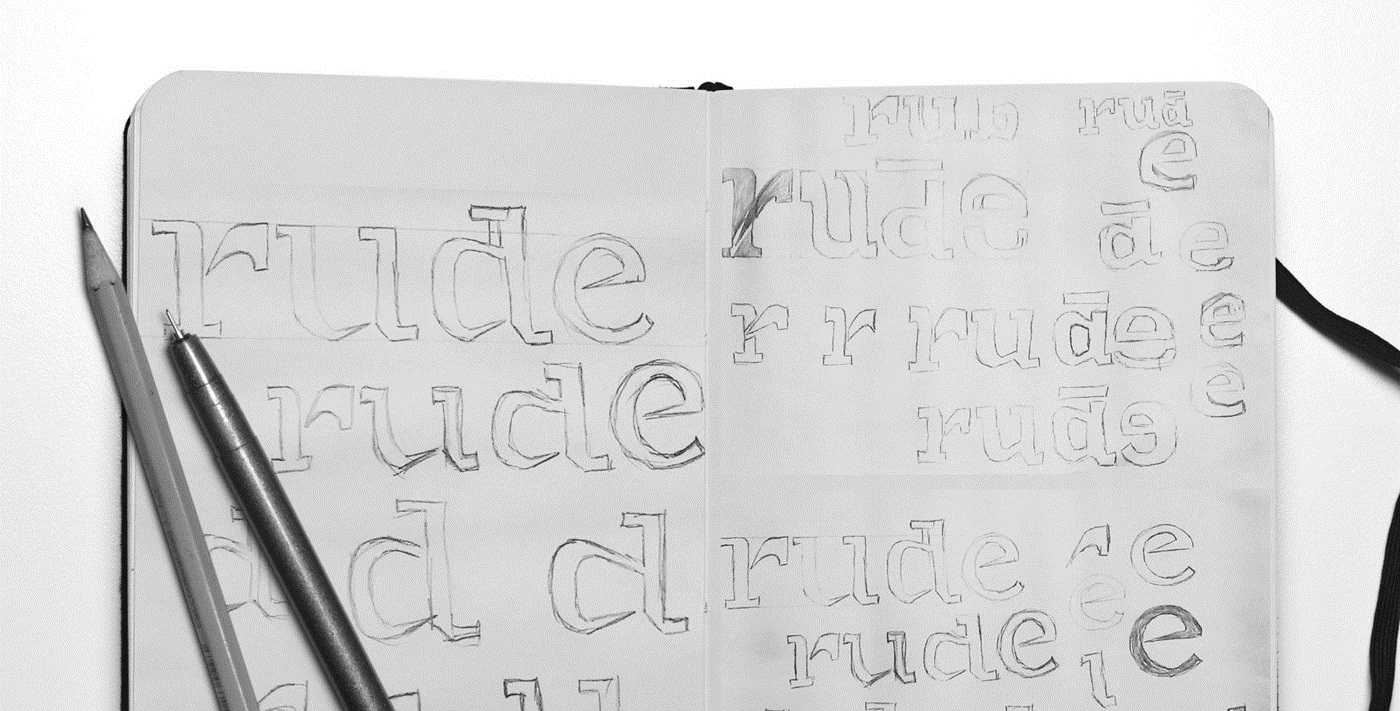 rude
rude
d d d
rud
rude
e
d e
r r rude e
e
rude
rude r e
e
rude e
l